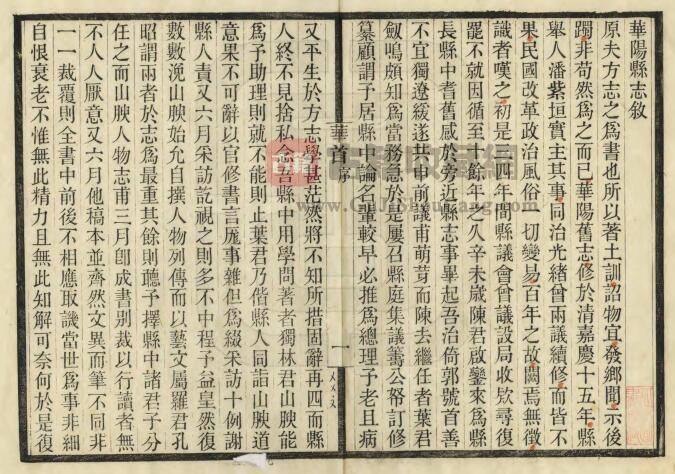 華陽縣志敘
原夫方志之為書也所以著土訓詔物宜發鄉聞示後
躅非苟然為之而已華陽舊志修於清嘉慶十五年縣
舉人潘紫垣實主其事同治光緒曾兩議續修而皆不
果民國改革政治風俗一切變易百年之故闕焉無徵
識者嘆之初是十四年間縣議會曾議設局收欵尋復
罷不就因循至十餘年之久辛未歲陳君啟鑾來為縣
長縣中耆舊感於旁近縣志事畢起吾治倚郭號首善
不宜獨遼緩遂共申前議甫萌芽而陳去繼任者葉君
劍鳴頗知為當務急於是屢召縣庭集議籌公帑訂修
纂顧謂予居縣中論名輩較早必推為總理予老且病
又平生於方志學甚茫然將不知所措固辭再四而縣
人終不見捨私念吾縣中用學問著者獨林君山腴能
為予助理則就不能則止葉君乃偕縣人同詣山腴道
意果不可辭以官修書言厖事雜但為綴采訪十例謝
縣人責又六月采訪訖視之則多不中程予益皇然復
數數浼山腴始允自撰人物列傳而以藝文屬羅君孔
昭謂兩者於志為最重其餘則聽予擇縣中諸君子分
任之而山腴人物志甫三月卽成書別裁以行讀者無
不人人厭意又六月他稿本並齊然文異而筆不同非
一一裁覆則全書中前後不相應取譏當世為事非細
自恨衰老不惟無此精力且無此知解可奈何於是復
華首序
一